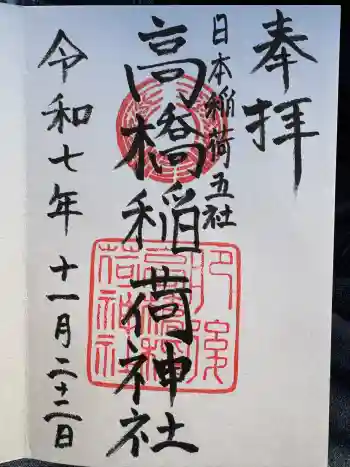 奉拝
日本稲荷五社
高橋稲荷神社
令和七年十一月二十二日
肥後
高橋稲
荷神社